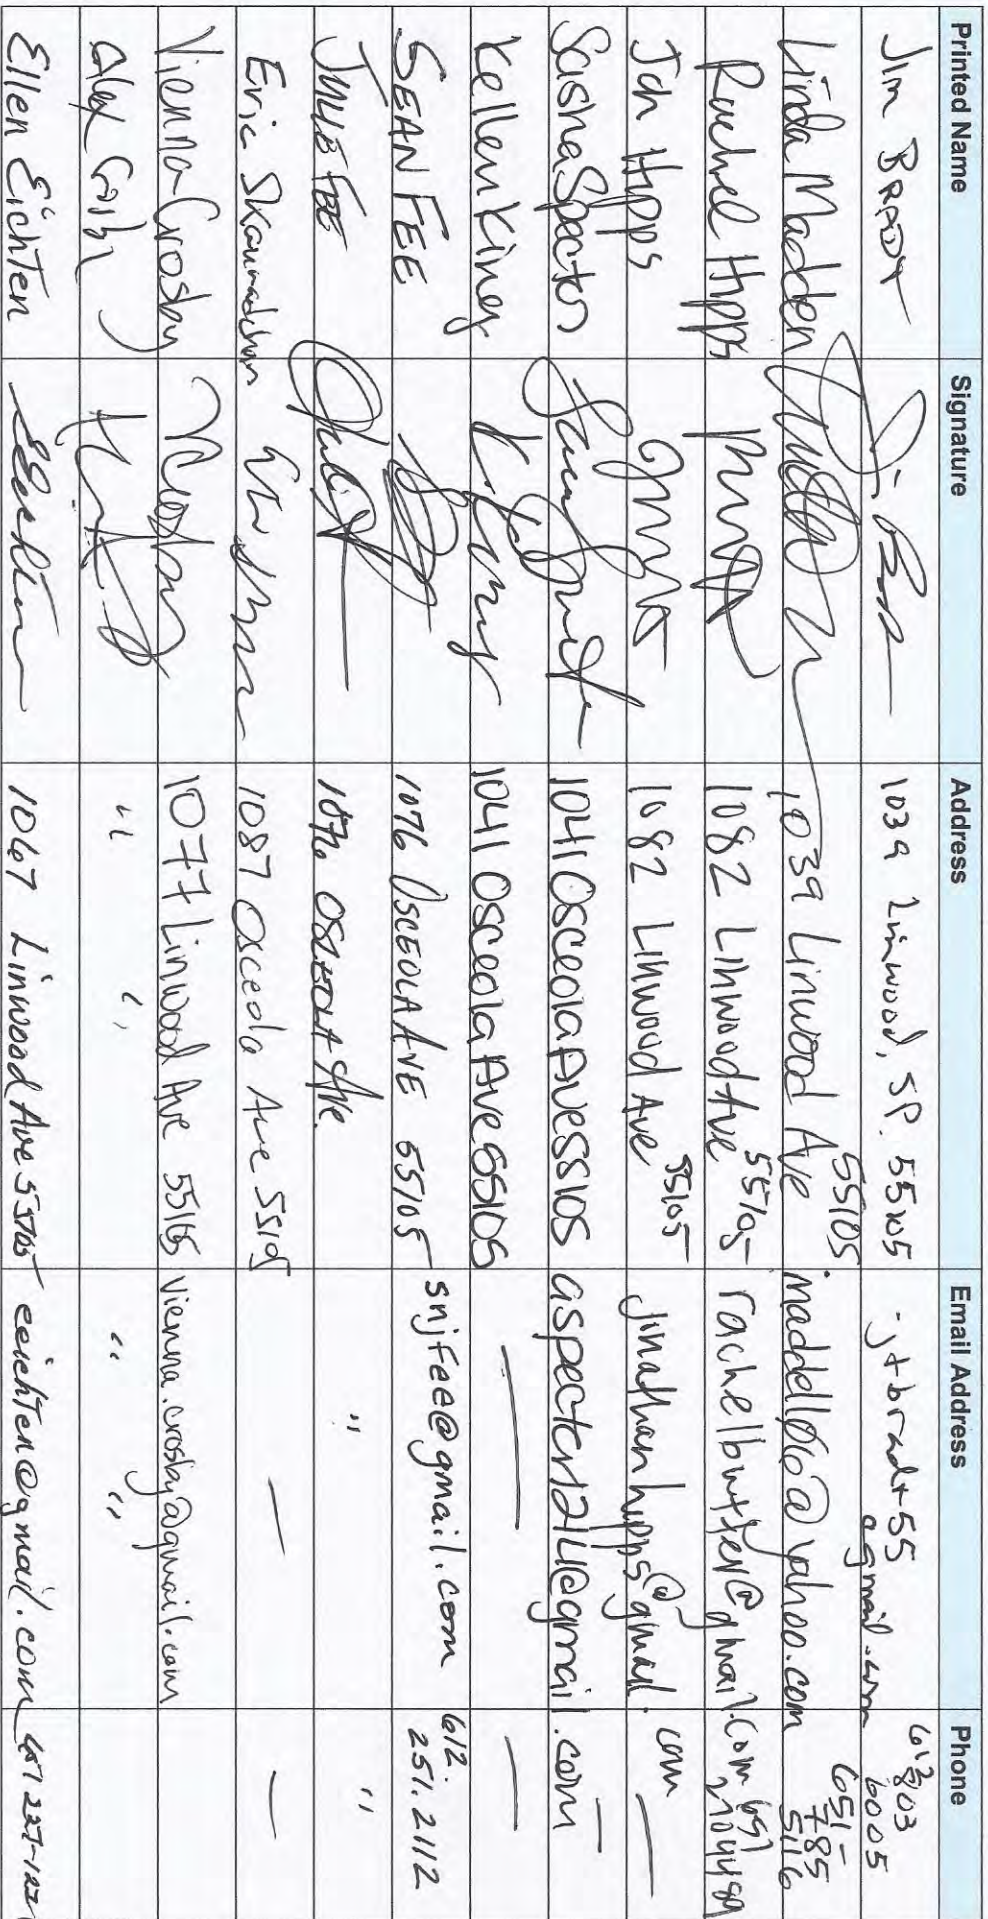 Printed Name Signature Address Email Address Phone
Jim BRADT 1039 Linwood, SP. 55105 jtbradt55@gmail.com 612 803 6005
Linda Madden 1039 Linwood Ave 55105 maddell06@yahoo.com 651-785 5116
Rachel Hipps 1082 Linwood Ave 55105 rachelbutler@gmail.com 651
Jon Hipps 1082 Linwood Ave 55105 jonathanhipps@gmail.com —
Sasha Spector 1041 Osceola Ave 55105 aspector1214@gmail.com —
Kellen Kiney 1041 Osceola Ave 55105 — —
SEAN FEE 1076 OSCEOLA AVE 55105 snjfee@gmail.com 612. 251.2112
JULIE FEE 1076 OSCEOLA Ave. " "
Eric 1087 Osceola Ave 55105 — —
Vienna Crosby 1077 Linwood Ave 55105 vienna.crosby@gmail.com
Alex " " " "
Ellen Eichten 1067 Linwood Ave 55105 eeichten@gmail.com 651 227-1221